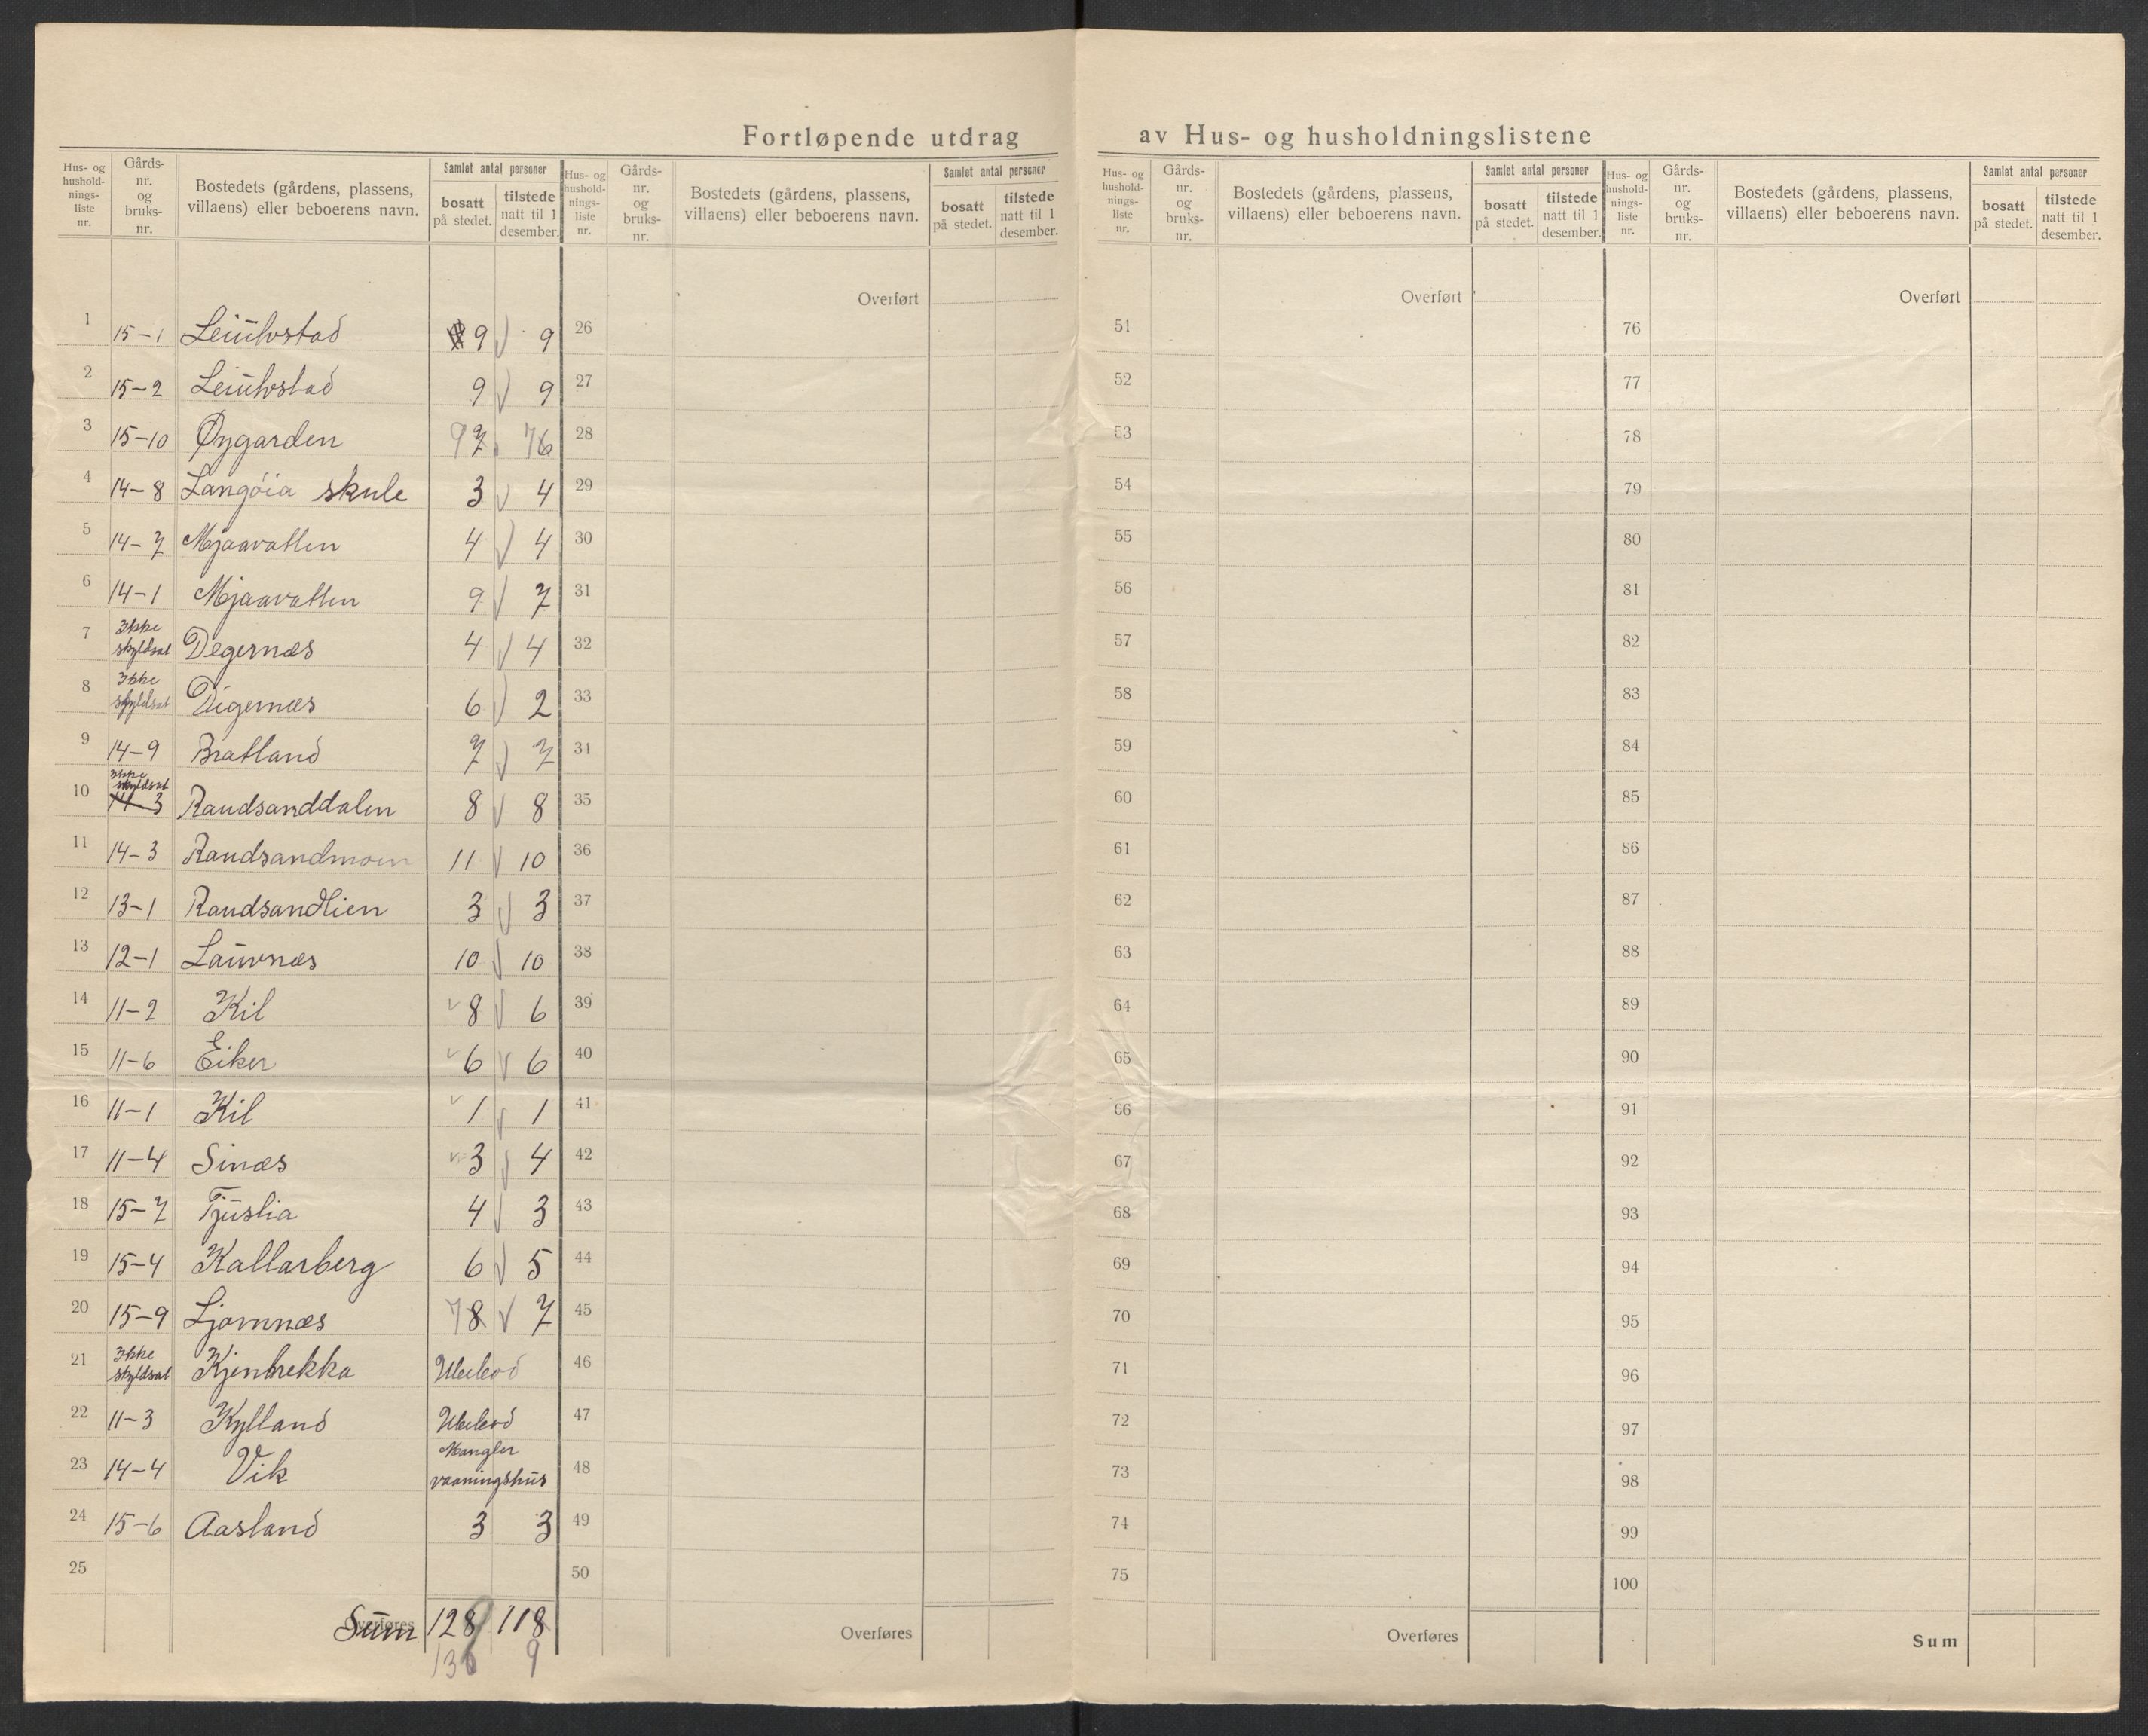 Fortløpende utdrag av Hus- og husholdningslistene
Hus- og husholdningsliste nr. Gårdsnr. og bruksnr. Bostedets (gårdens, plassens, villaens) eller beboerens navn. Samlet antal personer bosatt på stedet. tilstede natt til 1 desember.
Hus- og husholdningsliste nr. Gårdsnr. og bruksnr. Bostedets (gårdens, plassens, villaens) eller beboerens navn. Samlet antal personer bosatt på stedet. tilstede natt til 1 desember.
Hus- og husholdningsliste nr. Gårdsnr. og bruksnr. Bostedets (gårdens, plassens, villaens) eller beboerens navn. Samlet antal personer bosatt på stedet. tilstede natt til 1 desember.
Hus- og husholdningsliste nr. Gårdsnr. og bruksnr. Bostedets (gårdens, plassens, villaens) eller beboerens navn. Samlet antal personer bosatt på stedet. tilstede natt til 1 desember.
1 15-1 Leiulvstad 9 9
2 15-2 Leiulvstad 9 9
3 15-10 Øygarden 9 7 7 6
4 14-8 Langöia skule 3 4
5 14-7 Mjaavatten 4 4
6 14-1 Mjaavatten 9 7
7 Ikke skyldsat Degernæs 4 4
8 Ikke skyldsat Digernæs 6 2
9 14-9 Bratland 7 7
10 Ikke skyldsat 14-3 Raudsanddalen 8 8
11 14-3 Raudsandmoen 11 10
12 13-1 Raudsandlien 3 3
13 12-1 Lauvnæs 10 10
14 11-2 Kil 8 6
15 11-6 Eiker 6 6
16 11-1 Kil 1 1
17 11-4 Sinæs 3 4
18 15-7 Tjuslia 4 3
19 15-4 Kallarberg 6 5
20 15-9 Ljomnæs 7 8 7
21 Ikke skyldsat Kjenbrekka Ubebod
22 11-3 Kylland Ubebod
23 14-4 Vik Mangler vaaningshus
24 15-6 Aasland 3 3
25
Overføres Sum 128 118
13 9
Overført
26
27
28
29
30
31
32
33
34
35
36
37
38
39
40
41
42
43
44
45
46
47
48
49
50
Overføres
Overført
51
52
53
54
55
56
57
58
59
60
61
62
63
64
65
66
67
68
69
70
71
72
73
74
75
Overføres
Overført
76
77
78
79
80
81
82
83
84
85
86
87
88
89
90
91
92
93
94
95
96
97
98
99
100
Sum